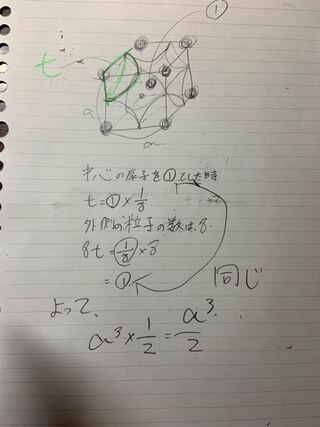 ①
t
a
a
中心の原子を①とした時
t=①×1/8
外側の粒子の数は、8.
8t=1/8×8
=①.
同じ
よって、
a³×1/2=a³/2